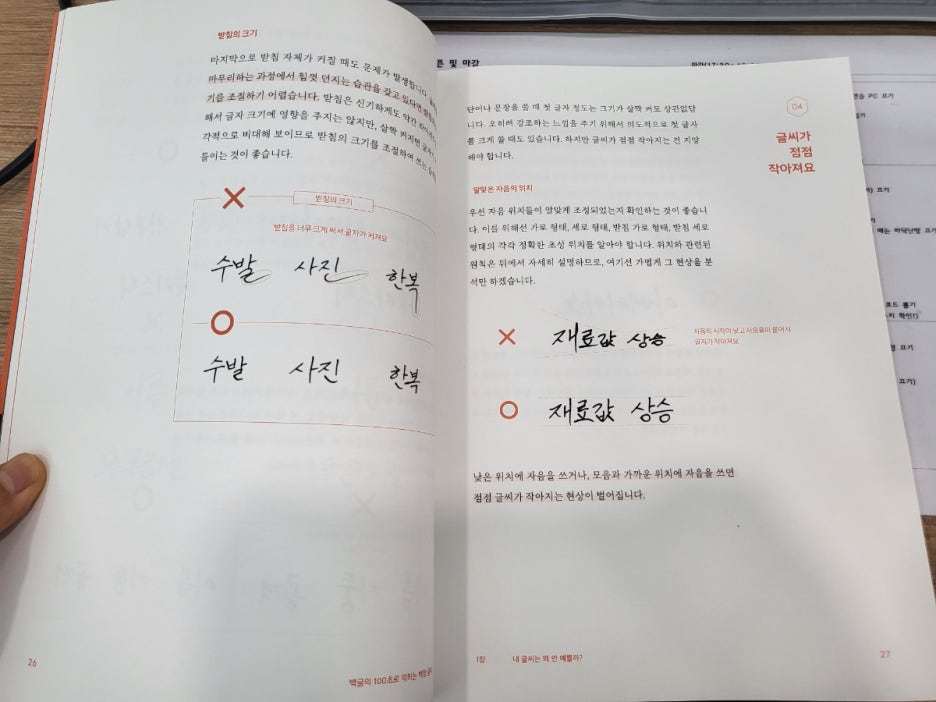 받침의 크기
마지막으로 받침 자체가 커질 때도 문제가 발생합니다.
마무리하는 과정에서 힘껏 던지는 습관을 갖고 있다면
기를 조절하기 어렵습니다. 받침은 신기하게도 약간
해서 글자 크기에 영향을 주지는 않지만, 살짝 커지면 글자가
각적으로 비대해 보이므로 받침의 크기를 조절하여 쓰는
들이는 것이 좋습니다.
받침의 크기
받침을 너무 크게 써서 글자가 커져요
수발 사진 한복
수발 사진 한복
26
백글의 100초로 익히는
단어나 문장을 쓸 때 첫 글자 정도는 크기가 살짝 커도 상관없답
니다. 오히려 강조하는 느낌을 주기 위해서 의도적으로 첫 글자
를 크게 쓸 때도 있습니다. 하지만 글씨가 점점 작아지는 건 지양
해야 합니다.
04
글씨가
점점
작아져요
알맞은 자음의 위치
우선 자음 위치들이 알맞게 조정되었는지 확인하는 것이 좋습니
다. 이를 위해선 가로 형태, 세로 형태, 받침 가로 형태, 받침 세로
형태의 각각 정확한 초성 위치를 알아야 합니다. 위치와 관련된
원칙은 뒤에서 자세히 설명하므로, 여기선 가볍게 그 현상을 분
석만 하겠습니다.
재료값 상승
자음의 시작이 낮고 자모음이 붙어서
글자가 작아져요
재료값 상승
낮은 위치에 자음을 쓰거나, 모음과 가까운 위치에 자음을 쓰면
점점 글씨가 작아지는 현상이 벌어집니다.
1장 내 글씨는 왜 안 예쁠까?
27
및 마감
PC 끄기
끄기
때는 바닥난방 끄기
코드 뽑기
확인!)
끄기
끄기)